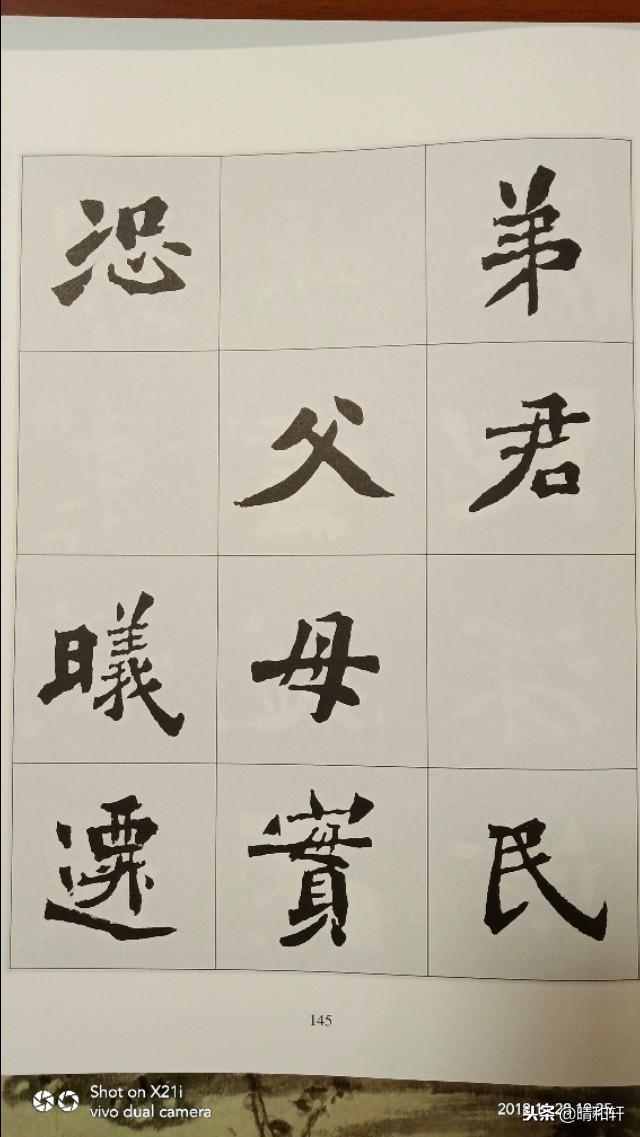 弟君民
父母實
恐曦遷
145
Shot on X21i
vivo dual camera
头条@晴和轩